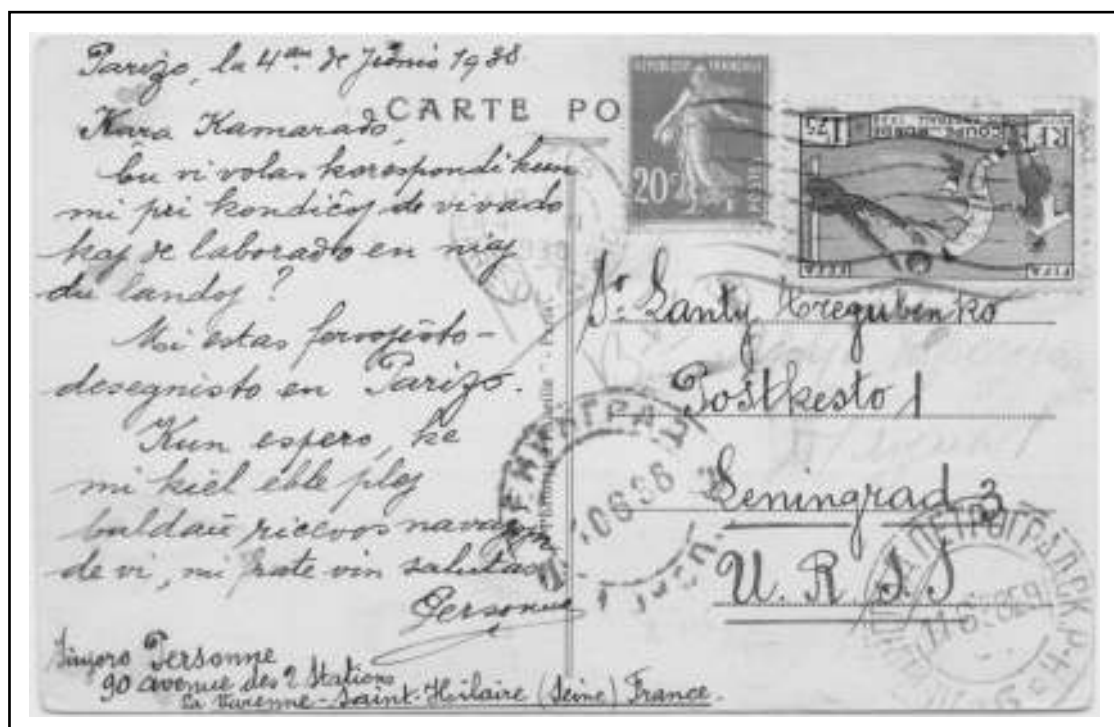 Parizo, la 4an de Junio 1938.
CARTE PO
Kara Kamarado,
Ĉu vi volas korespondi kun
mi pri kondiĉoj de vivado
kaj de laborado en niaj
du landoj?
Mi estas fervojisto-
desegnisto en Parizo.
Kun espero, ke
mi kiel eble plej
baldaŭ ricevos
de vi, mi frate vin salutas
Personne
Sinjoro Personne
90 avenue des 2 Stations
La Varenne-Saint-Hilaire (Seine) France.
REPUBLIQUE FRANÇAISE
20c
POSTES
RF
COUPE DU MONDE
1F75
FIFA
FFFA
So Lanty Tregubenko
Postkesto 1
Leningrad 3
U. R S. S
ЛЕНИНГРАД
10638
ПЕТРОГРАДСК.Р-Н